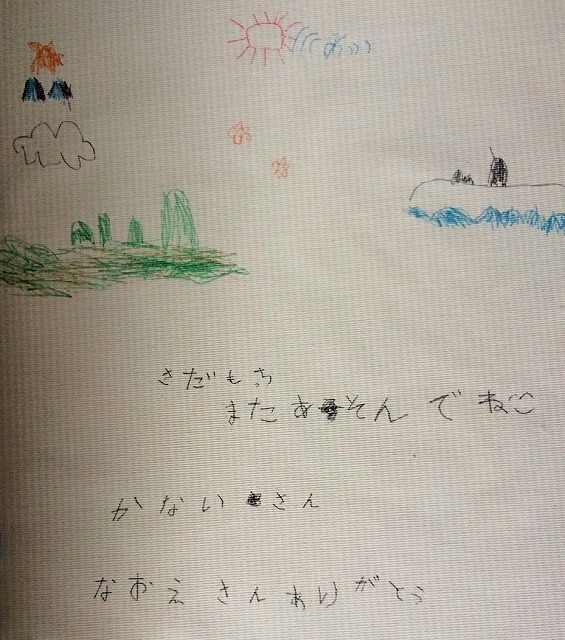 さだもち
またあそんでねこ
かないさん
なおえさんありがとう